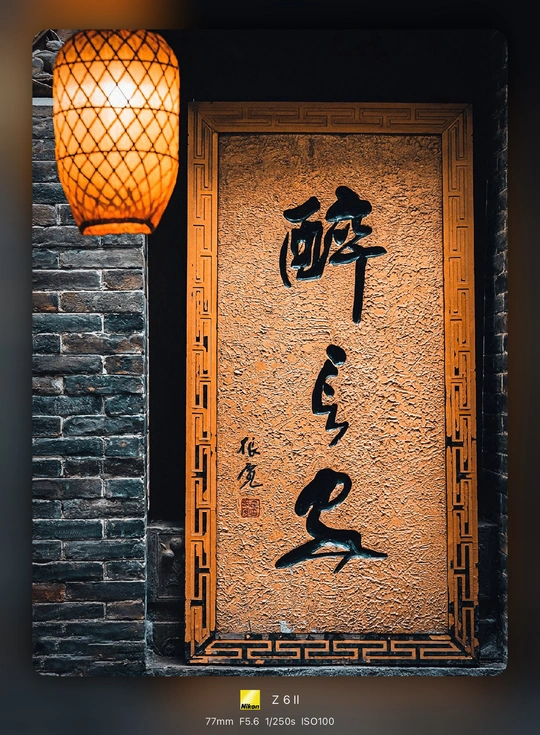 醉长安
Nikon
Z 6II
77mm F5.6 1/250s ISO100